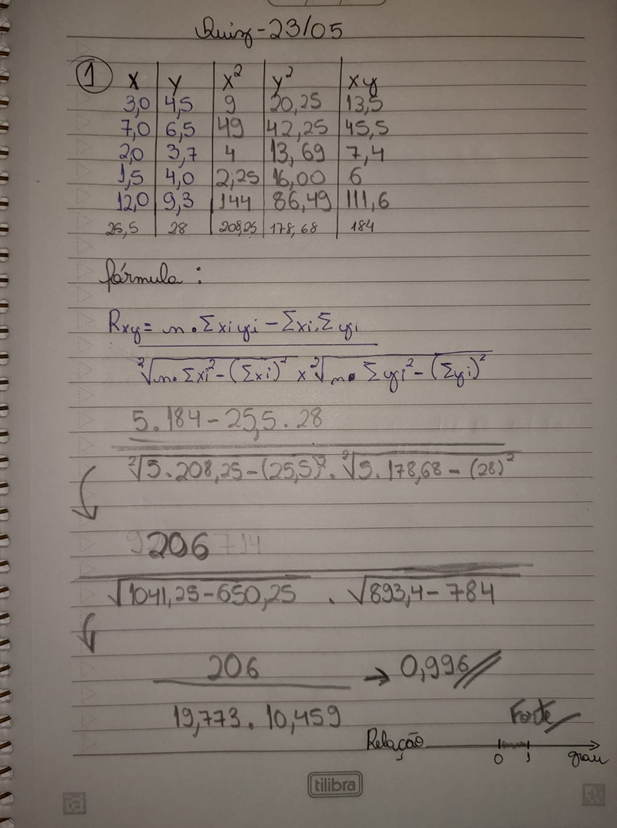 Quiz - 23/05
1 X Y X² Y² XY
3,0 4,5 9 20,25 13,5
7,0 6,5 49 42,25 45,5
2,0 3,7 4 13,69 7,4
1,5 4,0 2,25 16,00 6
12,0 9,3 144 86,49 111,6
25,5 28 208,25 178,68 184
fórmula :
Rxy = n. Σxiyi - Σxi.Σyi
²√n. Σxi² - (Σxi)² x ²√n. Σyi² - (Σyi)²
5.184 - 25,5 . 28
²√5.208,25 - (25,5)² . ²√5.178,68 - (28)²
206
√1041,25 - 650,25 . √893,4 - 784
206 → 0,996
19,773 . 10,459
Forte
Relação
0 1 grau
tilibra